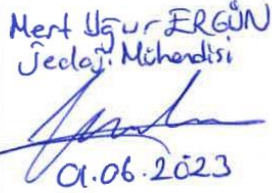 Mert Uğur ERGÜN
Jeoloji Mühendisi
01.06.2023